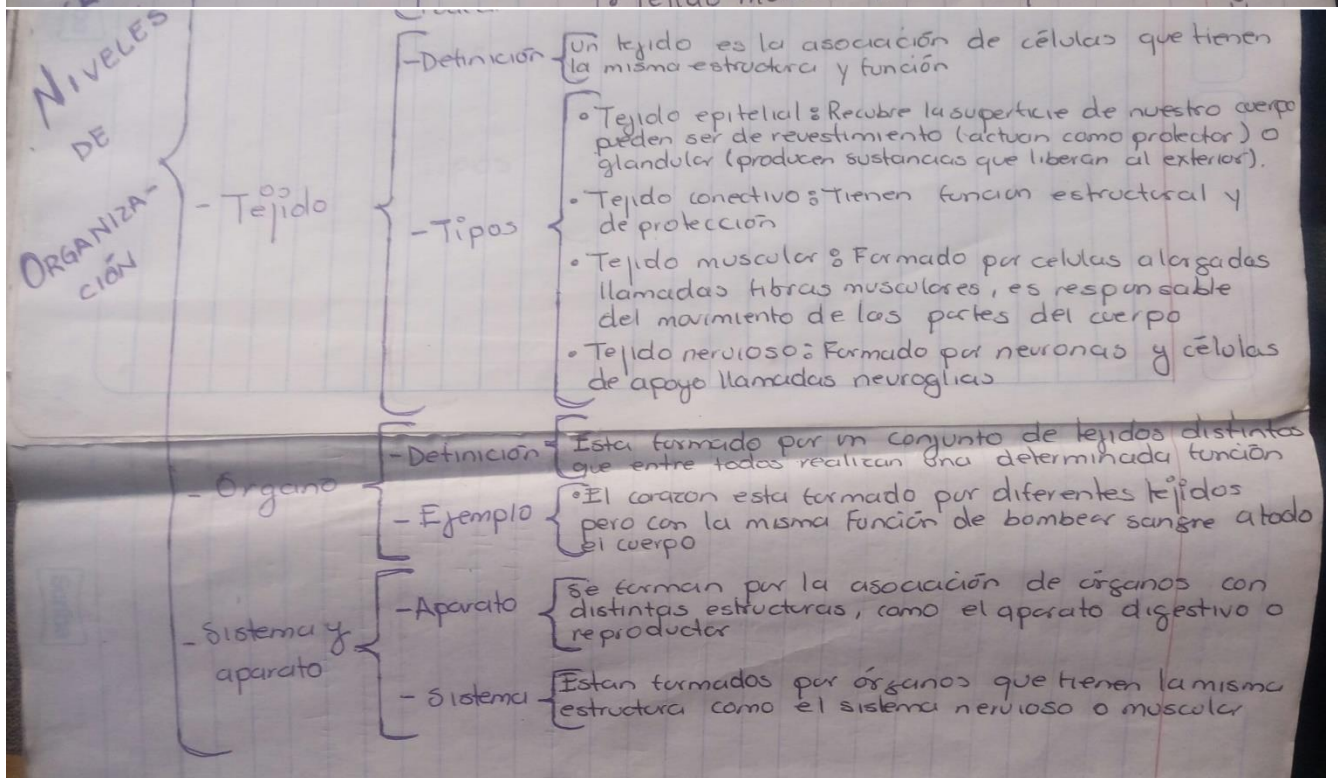 NIVELES
DE
ORGANIZA-
CIÓN
- Tejido
- Definición
Un tejido es la asociación de células que tienen
la misma estructura y función
- Tipos
• Tejido epitelial: Recubre la superficie de nuestro cuerpo
pueden ser de revestimiento (actuan como protector) o
glandular (producen sustancias que liberan al exterior).
• Tejido conectivo: Tienen funcion estructural y
de protección
• Tejido muscular: Formado por celulas alargadas
llamadas fibras musculares, es responsable
del movimiento de las partes del cuerpo
• Tejido nervioso: Formado por neuronas y células
de apoyo llamadas neuroglias
- Órgano
- Definición
Esta formado por un conjunto de tejidos distintos
que entre todos realizan una determinada función
- Ejemplo
• El corazon esta formado por diferentes tejidos
pero con la misma función de bombear sangre a todo
el cuerpo
- Sistema y
aparato
- Aparato
Se forman por la asociación de órganos con
distintas estructuras, como el aparato digestivo o
reproductor
- Sistema
Estan formados por órganos que tienen la misma
estructura como el sistema nervioso o muscular